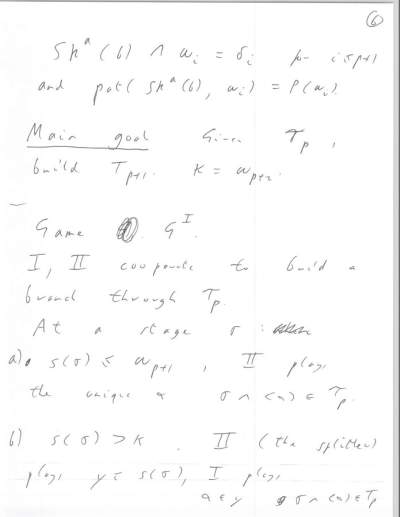 6
Sk^a(b) ∩ ω_i = δ_i for i ≤ p+1
and pot(Sk^a(b), ω_i) = P(ω_i).
Main goal Given T_p,
build T_{p+1}. K = ω_{p+2}.
Game G^I.
I, II cooperate to build a
branch through T_p.
At a stage σ :
a) s(σ) ≤ ω_{p+1}, II plays
the unique α σ ∩ ⟨α⟩ ∈ T_p.
b) s(σ) > K. II (the splitter)
plays y ⊂ s(σ), I plays
a ∈ y σ ∩ ⟨a⟩ ∈ T_p